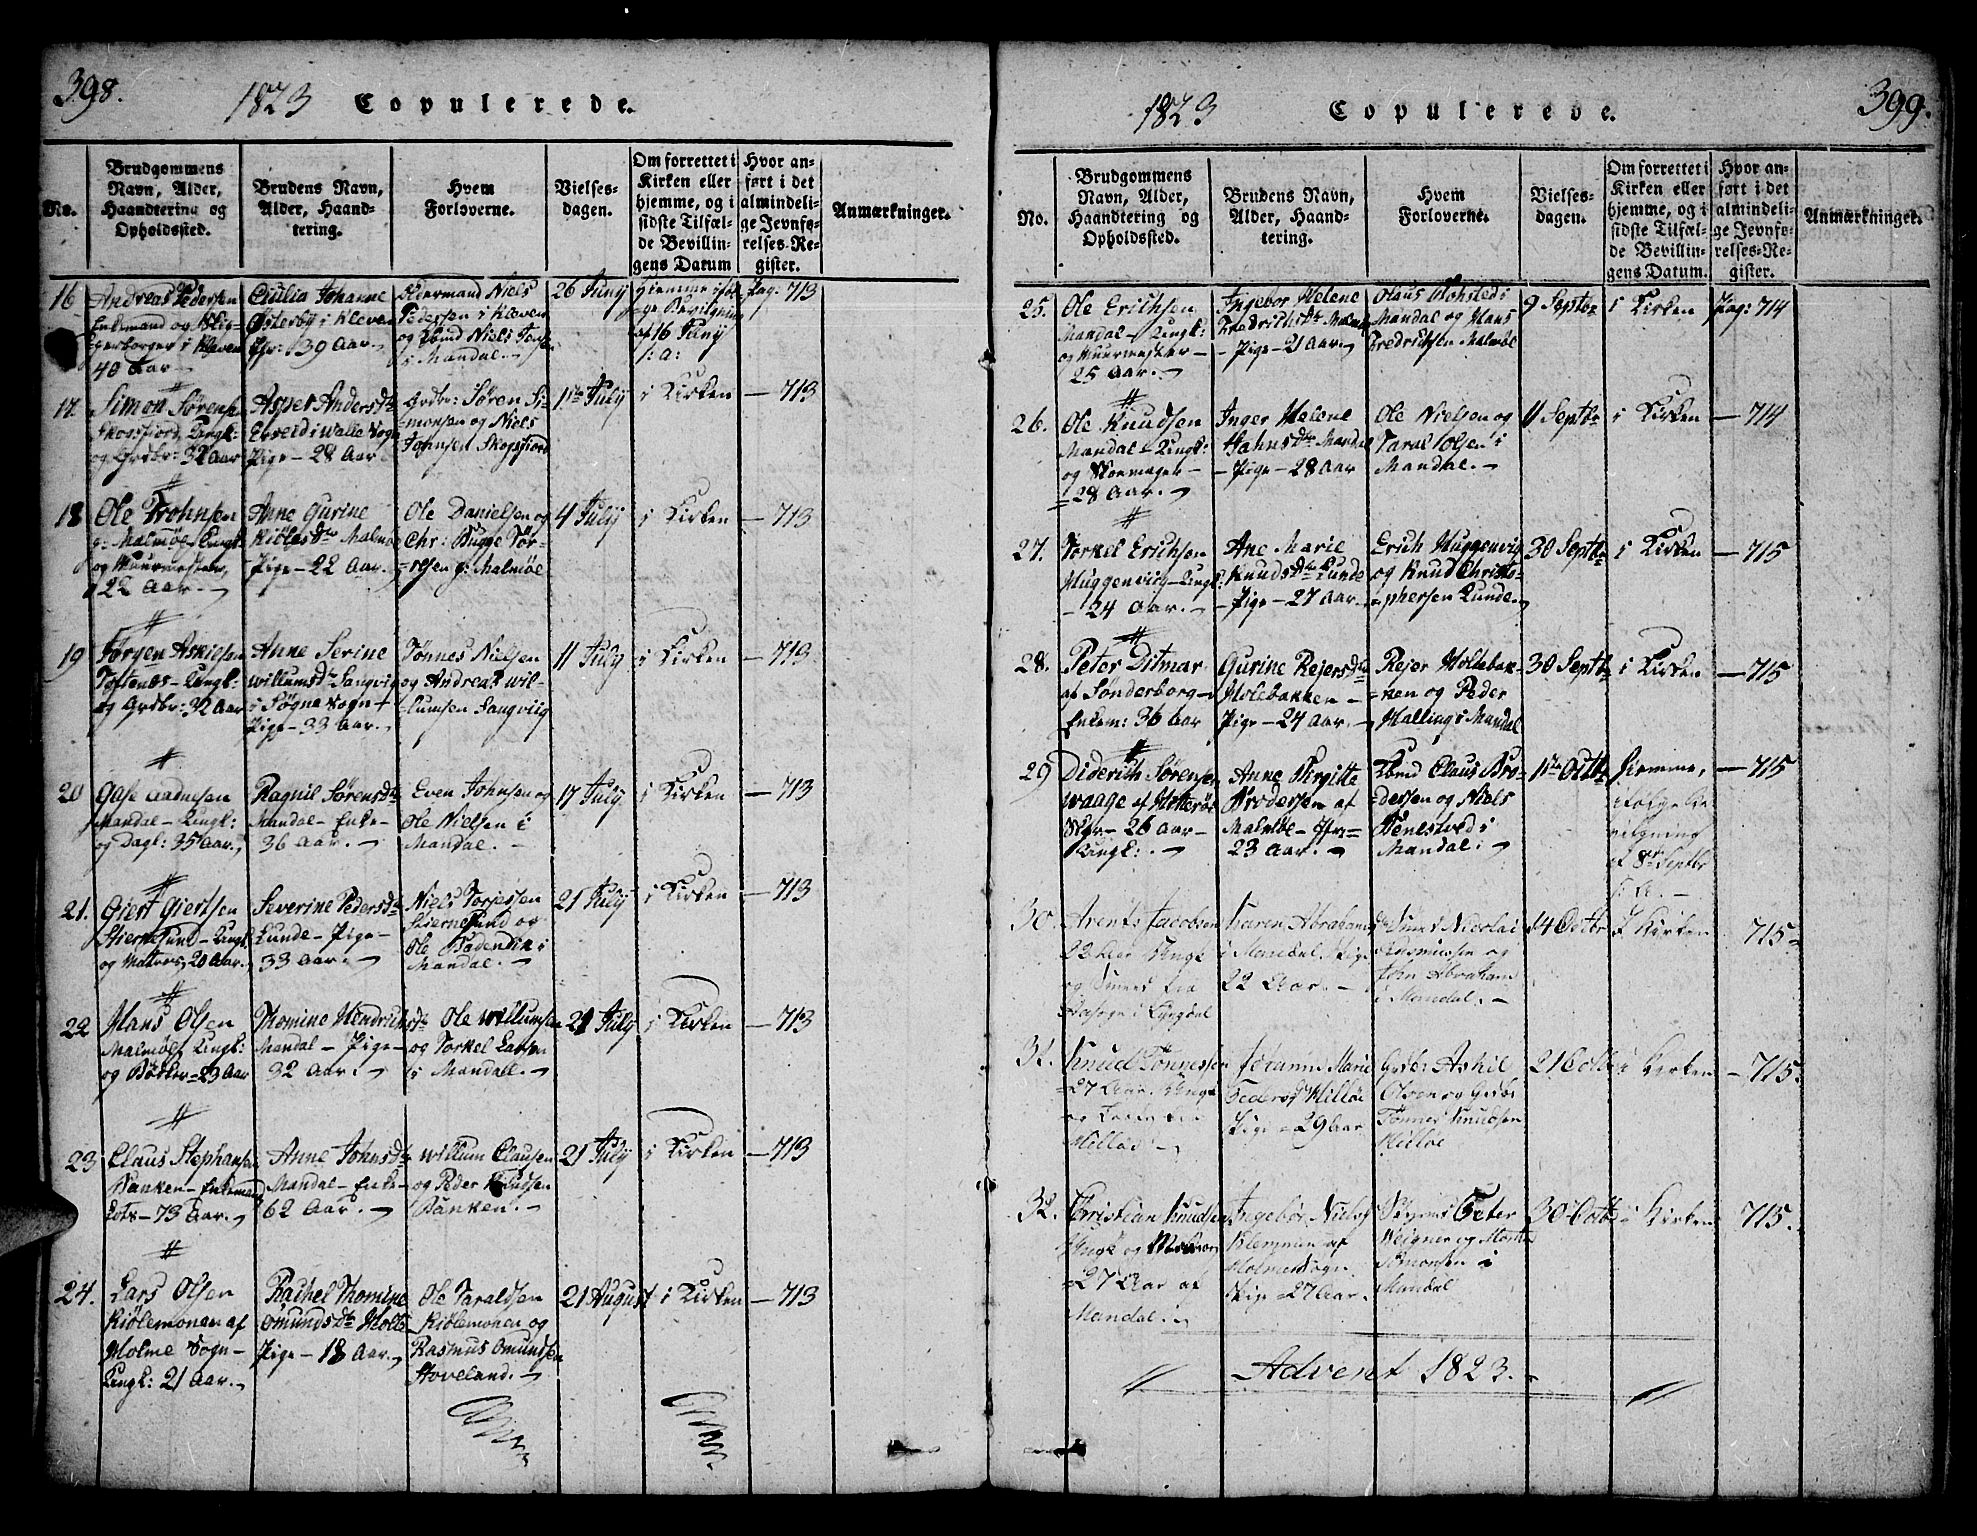 398.
1823 Copulerede.
No.
Brudgommens
Navn, Alder,
Haandtering og
Opholdssted.
Brudens Navn,
Alder, Haand-
tering.
Hvem
Forloverne.
Vielses-
dagen.
Om forrettet i
Kirken eller
hjemme, og i
sidste Tilfæl-
de Bevillin-
gens Datum
Hvor an-
ført i det
almindeli-
ge Jevnfø-
relses-Re-
gister.
Anmærkninger.
16
Andreas Pedersen
Enkemand og
i Kleven
40 Aar
Cicilia Johanne
Østerbÿ i Kleven
39 Aar
Oldermand Niels
Pedersen i Kleven
og Niels
i Mandal.
26 Junÿ
Hjemme iføl-
ge Bevilgning
af 16 Junÿ
/:a:/
Pag. 713
17.
Simon Sørens
Skogsfiord, Ungk:
og Grdbr: 32 Aar
Asper Andersdtr
i Walle Sogn
Pige - 28 Aar
Grdbr: Søren Si-
monsen og Niels
Johnsen Skogsfiord
1ste Julÿ
i Kirken
- 713
18
Ole Trohnsen
g: Malmøe, Ungk:
og Muurmester,
22 Aar.
Anne Gurine
Malmøe
Pige - 22 Aar.
Ole Danielsen og
Chr: Bugge Tør-
resen g: Malmøe
4 Julÿ
i Kirken
- 713
19
Jørgen Askielsen
Toftenes - Ungk:
og Grdbr: 32 Aar
Anne Serine
Willumsdr Sangvig
i Søgne Sogn
Pige - 33 Aar.
Tønnes Nielsen
og Andreas Wil-
lumsen Sangviig
11 Julÿ
i Kirken
- 713.
20
Gase Aadnesen
Mandal - Ungk:
og Dagl: 35 Aar.
Ragnil Sørensdtr
Mandal - Enke -
36 Aar.
Even Johnsen og
Ole Nielsen i
Mandal.
17 Julÿ
i Kirken
- 713
21.
Giert Giertsen
Stiernesund - Ungk:
og Matros, 20 Aar.
Severine Pedersdtr
Lunde - Pige -
33 Aar.
Niels Torjesen
Stiernesund og
Ole Bodendik i
Mandal.
21 Julÿ
i Kirken
- 713
22
Hans Olsen
Malmøe, Ungk:
og Bødker - 23 Aar
Thomine Hendrichsdtr
Mandal - Pige -
32 Aar.
Ole Willumsen
og Torkel Larsen
i Mandal.
21 Julÿ
i Kirken
- 713
23
Claus Stephansen
Banken - Enkemand
Lots - 73 Aar.
Anne Johnsdtr
Mandal - Enke -
62 Aar.
Willum Clausen
og Peder Knudsen
Banken.
21 Julÿ
i Kirken
- 713
24.
Lars Olsen
Kiølemonen af
Holme Sogn -
Ungk: 21 Aar.
Rachel Thomine
Omundsdtr Holte
Pige - 18 Aar.
Ole Taraldsen
Kiølemonen og
Rasmus Omundsen
Hoveland.
21 August
i Kirken
- 713
1823 Copulerede.
399.
No.
Brudgommens
Navn, Alder,
Haandtering og
Opholdssted.
Brudens Navn,
Alder, Haand-
tering.
Hvem
Forloverne.
Vielses-
dagen.
Om forrettet i
Kirken eller
hjemme, og i
sidste Tilfæl-
de Bevillin-
gens Datum.
Hvor an-
ført i det
almindeli-
ge Jevnfø-
relses-Re-
gister.
Anmærkninger.
25.
Ole Erichsen
Mandal - Ungk:
og Muurmester -
25 Aar.
Ingebor Helene
Fredrichsdtr Malmøe
- Pige - 21 Aar.
Olaus i
Mandal og Hans
Fredrichsen Malmøe
9 Septbr
i Kirken
Pag: 714
26.
Ole Knudsen
Mandal - Ungk:
og Skoemager -
28 Aar.
Inger Helene
Hansdtr Mandal
- Pige - 28 Aar
Ole Nielsen og
Taral Olsen i
Mandal.
11 Septbr
i Kirken
- 714
27.
Torkel Erichsen
Huggenviig - Ungk:
- 24 Aar.
Ane Marie
Knudsdtr Lunde
- Pige - 27 Aar.
Erich Huggenvig
og Knud Christo-
phersen Lunde.
30 Septbr
i Kirken
- 715
28.
Peter Ditmar
af Sønderborg -
Enkem: 36 Aar
Gurine Rejersdtr
Holebakken -
Pige - 24 Aar.
Rejer Holtebak-
ken og Peder
Halling i Mandal
30 Septbr
i Kirken
- 715
29
Diderich Sørensen
Waage af Hitterøe
- 26 Aar -
Ungk:.
Anne Birgitte
Brodersen af
Malmøe -
23 Aar.
Claus Bro-
dersen og Niels
Benestved i
Mandal.
1ste Octbr
Hjemme,
ifølge Be-
vilgning
af 8de Septbr
- 715
30.
Arent Jacobsen
22 Aar Ungk
og Smed fra
i Lyngdal
Karen Abrahamsdr
i Mandal. Pige
22 Aar.
Smed Nicolai
Rasmussen og
John Abrahams
i Mandal.
14 Octbr
I Kirken
715.
31.
Knud Tønnessen
27 Aar. Ungk
og fra
Hilløe.
Johanne Marie
Pedersd Hilløe
Pige - 29 Aar
Grdbr Askil
Olsen og Grdbr
Tønnes Knudsen
Hilløe
21 Octbr
i Kirken
- 715.
32.
Christian Knudsen
Ungk og Matros
27 Aar af
Mandal.
Ingebor Nielsd
Klemmen af
Holmesogn.
Pige - 27 Aar.
Peter
Weigner og
Simonsen i
Mandal
30 Octbr
i Kirken
715.
Advent 1823.